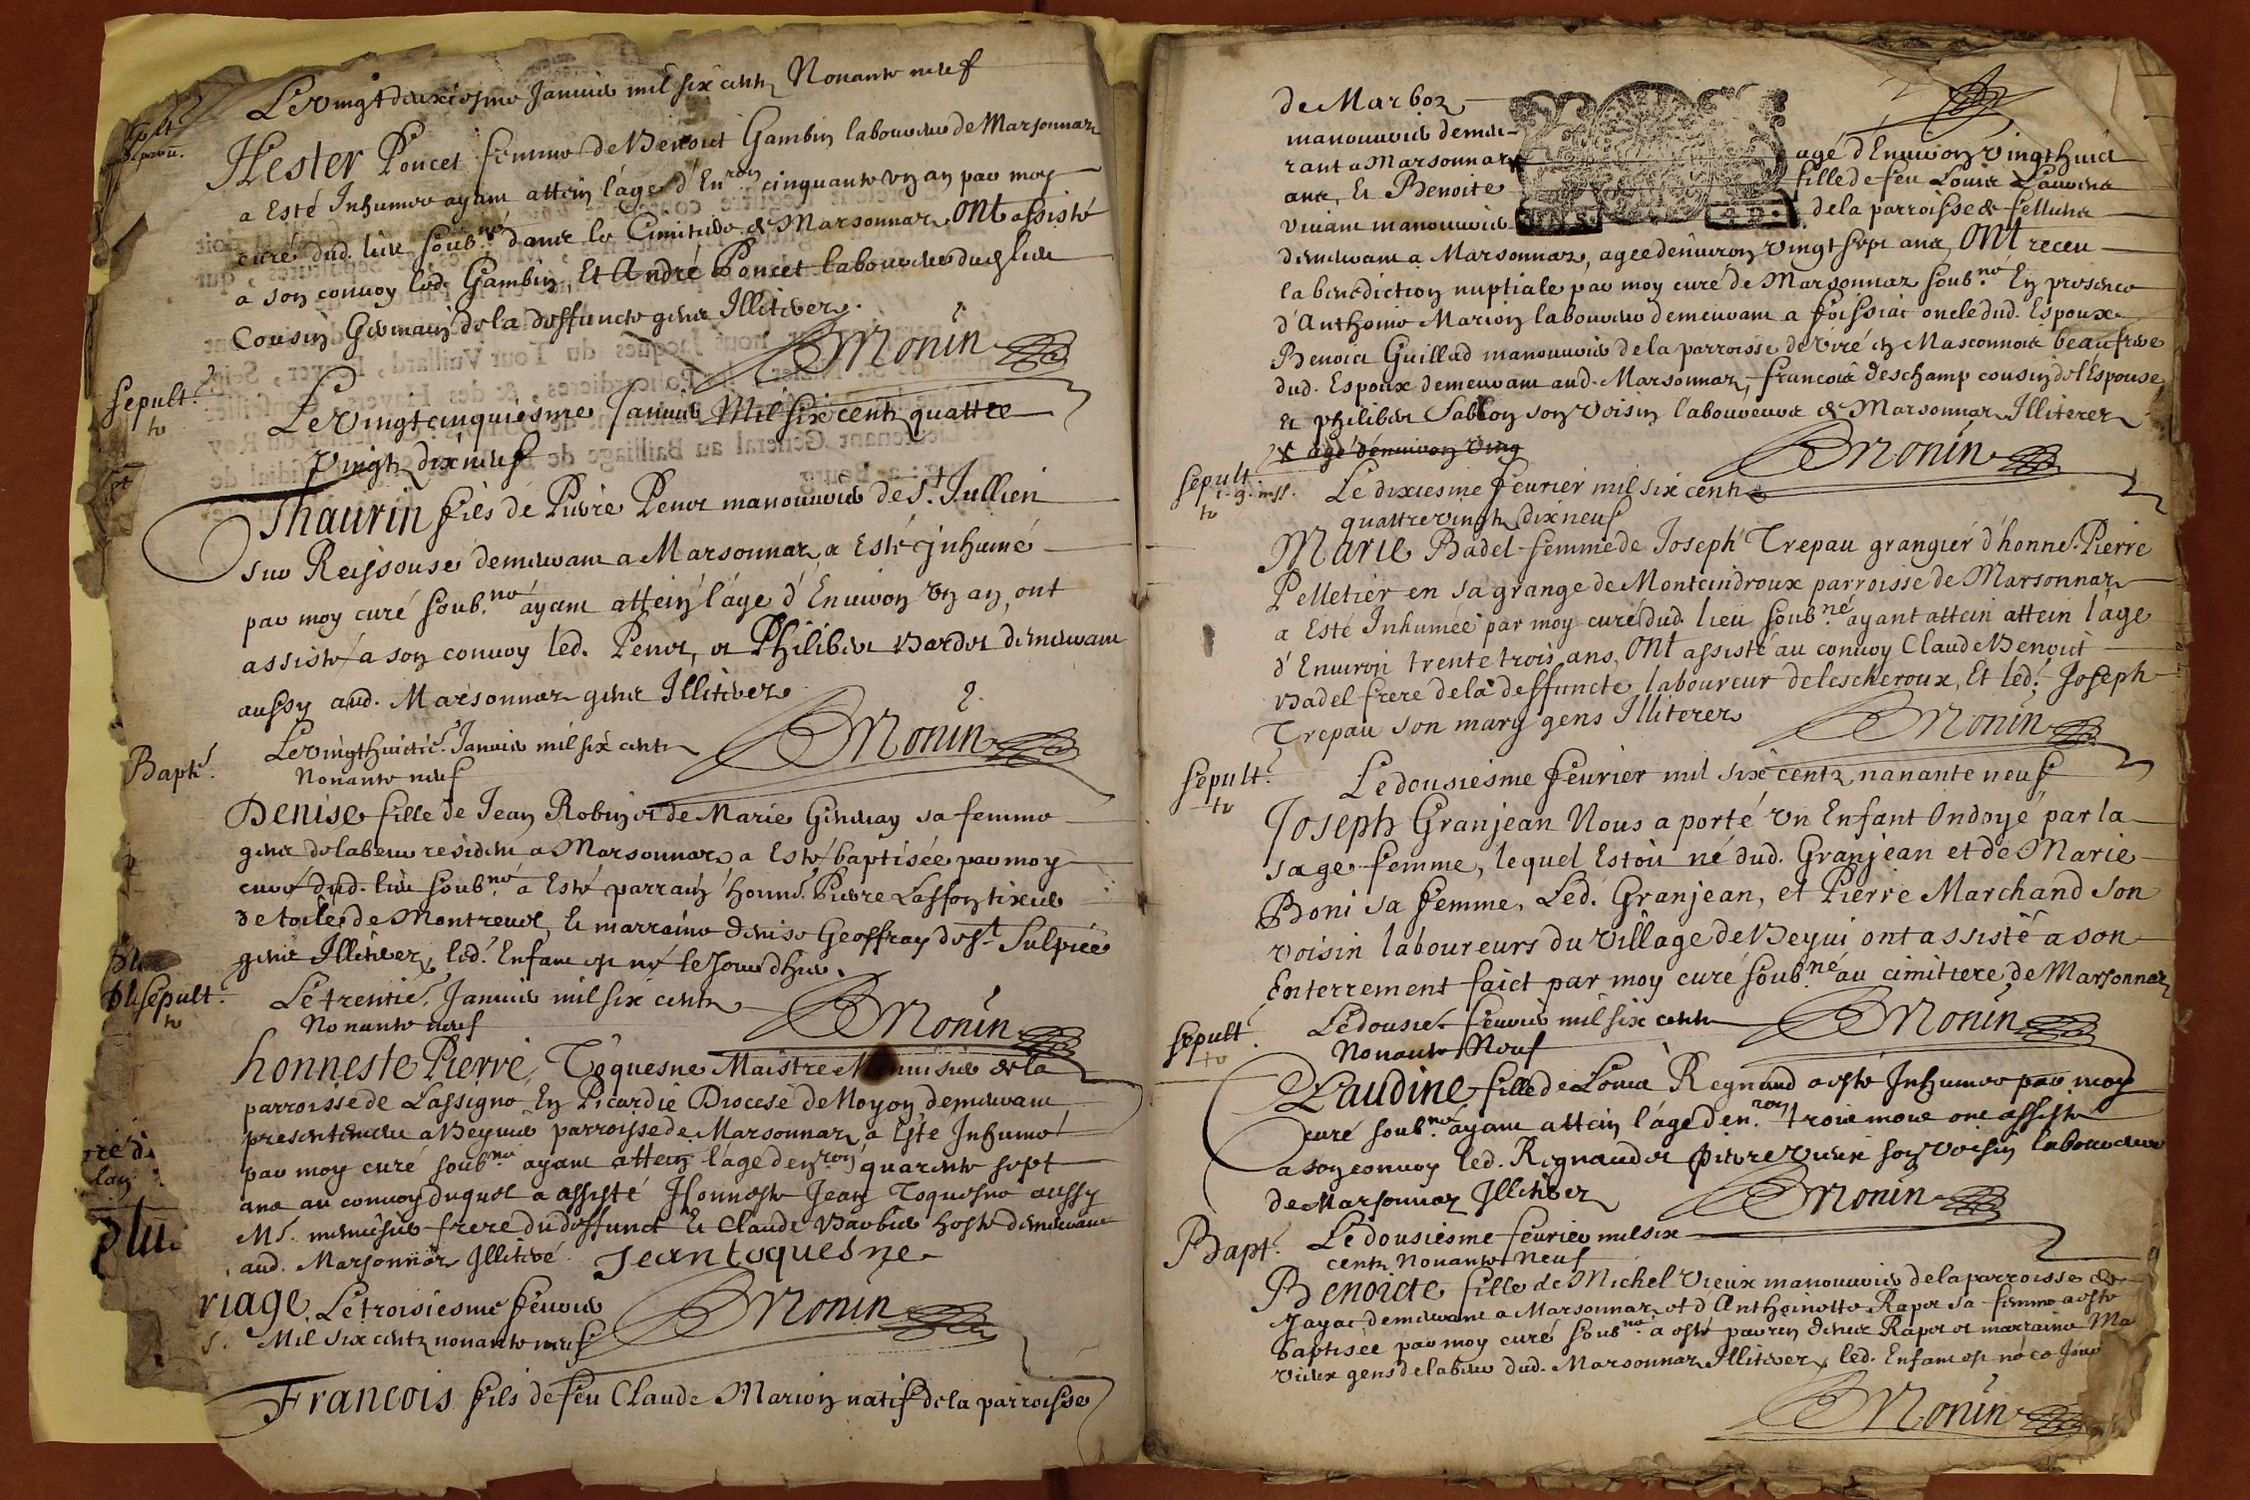 Le vingt deuxiesme Janvier mil six cents Nonante neuf
Sepult.
Hester Poncet femme de Benoict Gambin laboureur de Marsonnaz
a Esté Inhumee ayant attein l'age d'En.ron cinquante vn an par moy
curé dud. lieu soub.né dans le Cimitiere de Marsonnaz ONt assisté
a son convoy led. Gambin, Et André Poncet laboureur dud. lieu
Cousin Germain de la deffuncte gens Illiterez.
BMonin
Sepult.
Le Vingt cinquiesme Janvier Mil six cents quattre
Vingts dix neuf
Thaurin fils de Pierre Penet manouvrier de St. Jullien
sur Reissouse demeurant a Marsonnaz a Esté inhumé
par moy curé soub.né ayant attein l'age d'Environ vn an, ont
assisté a son convoy led. Penet, et Philibert Bardet demeurant
aussy aud. Marsonnaz gens Illiterez
BMonin
Bapt.
Le vingt huictie. Janvier mil six cents
Nonante neuf
Denise fille de Jean Robin et de Marie sa femme
gens de labeur residents a Marsonnaz a Esté baptisée par moy
curé dud. lieu soub.né a Esté parrain honne. Pierre Laffon tixier
de toiles de Montrevel et marraine Denise Geoffray de St. Sulpice
gens Illiterez, led. Enfant est né le Jour d'hier.
Sepult.
Le trentie. Janvier mil six cents
Nonante neuf
BMonin
honneste Pierre Toquesne Maistre Menuisier de la
parroisse de Lassigno En Picardie Diocese de Noyon demeurant
presentement a Beyviers parroisse de Marsonnaz a Esté Inhumé
par moy curé soub.né ayant attein l'age d'en.ron quarente sept
ans au convoy duquel a assisté Honneste Jean Toquesne aussy
M.e menuisier frere du deffunct Et Claude Barbier hoste demeurant
aud. Marsonnaz Illiteré. Jean toquesne
riage
Le troisiesme fevrier
Mil six cents nonante neuf
BMonin
Francois fils de feu Claude Marion natif de la parroisse
de Marboz
manouvrier demeu-
rant a Marsonnaz agé d'Environ vingt huict
ans, Et Benoite fille de feu Louis
manouvrier de la parroisse de
demeurant a Marsonnaz, agee d'environ vingt sept ans, ONt receu
la benediction nuptiale par moy curé de Marsonnaz soub.né En presence
d'Anthoine Marion laboureur demeurant a foissiat oncle dud. Espoux
Benoict Guillud manouvrier de la parroisse de viré en Masconnois beaufrere
dud. Espoux demeurant aud. Marsonnaz, francois deschamp cousin de l'Espouse
Et philibert Sablon son voisin laboureurs de Marsonnaz Illiterez
agé d'environ ving
BMonin
Sepult.
Le dixiesme fevrier mil six cents
quattre vingts dix neuf
Marie Badel femme de Joseph Trepau grangier d'honne. Pierre
Pelletier en sa grange de Monteindroux parroisse de Marsonnaz
a Esté Inhumée par moy curé dud. lieu soub.né ayant attein attein l'age
d'Environ trente trois ans, ONt assisté au convoy Claude Benoict
Badel frere de la deffuncte laboureur de lescheroux, Et led. Joseph
Trepau son mary gens Illiterez
BMonin
Sepult.
Le dousiesme fevrier mil six cents nanante neuf
Joseph Granjean Nous a porté vn Enfant Ondoyé par la
sage femme, lequel Estoit né dud. Granjean et de Marie
Boni sa femme, Led. Granjean, et Pierre Marchand son
voisin laboureurs du village de Beyvi ont assisté a son
Enterrement faict par moy curé soub.né au cimitiere de Marsonnaz
Sepult.
Le dousie. fevrier mil six cents
Nonante Neuf
BMonin
Claudine fille de Louis Regnaud a esté Inhumee par moy
curé soub.né ayant attein l'age d'en.ron trois mois ont assisté
a son convoy led. Regnaud et pierre vieux son voisin laboureurs
de Marsonnaz Illiterez
BMonin
Bapt.
Le dousiesme fevrier mil six
cents Nonante Neuf
Benoicte fille de Michel Vieux manouvrier de la parroisse de
Jayat demeurant a Marsonnaz et d'Anthoinette Rapet sa femme a esté
baptisée par moy curé soub.né a esté parrin Denis Rapet et marraine Ma
vieux gens de labeur dud. Marsonnaz Illiterez, led. Enfant est né ce Jour
BMonin